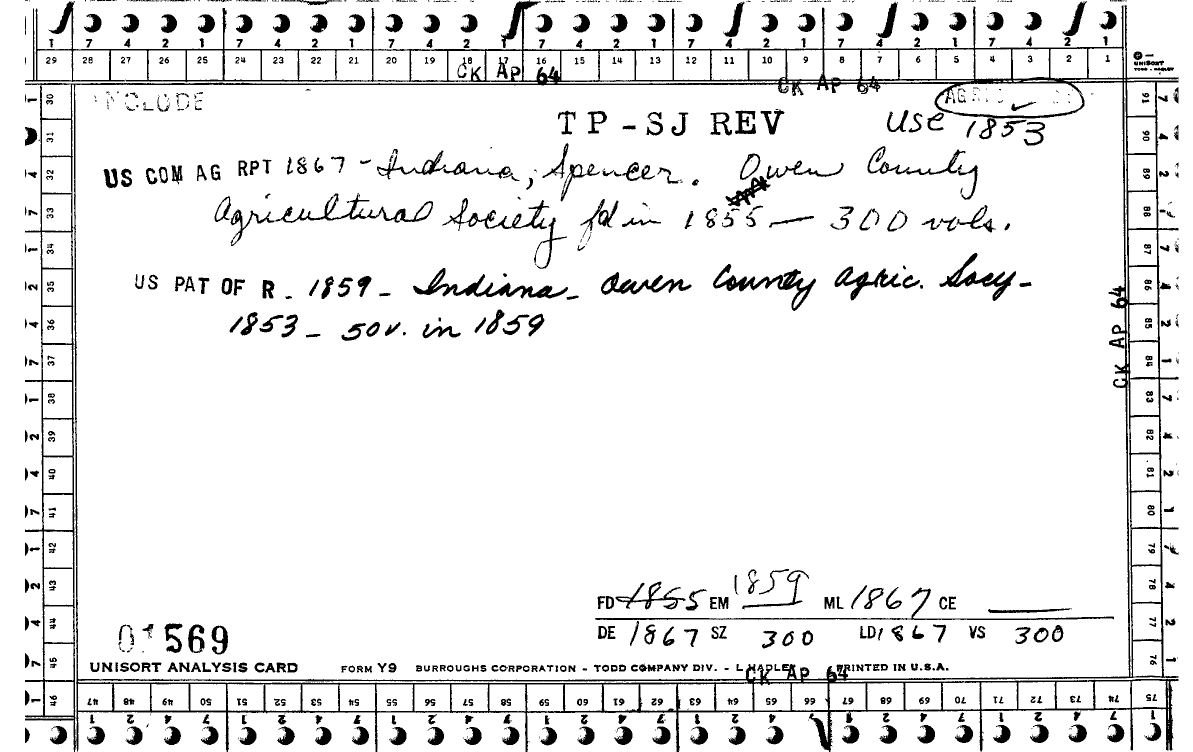 7 4 2 1 7 4 2 1 7 4 2 1 7 4 2 1 7 4 2 1 7 4 2 1 7 4 2 1
29 28 27 26 25 24 23 22 21 20 19 18 17 16 15 14 13 12 11 10 9 8 7 6 5 4 3 2 1
UNISORT
CK AP 64
CK AP 64
INCLUDE
TP-SJ REV
USE 1853
US COM AG RPT 1867 - Indiana, Spencer. Owen County
Agricultural Society fd in 1855 — 300 vols.
US PAT OF R - 1859 - Indiana - Owen County Agric. Socy -
1853 - 50v. in 1859
CK AP 64
FD 1855 EM 1859 ML 1867 CE
DE 1867 SZ 300 LD 1867 VS 300
01569
UNISORT ANALYSIS CARD FORM Y9 BURROUGHS CORPORATION - TODD COMPANY DIV. - PRINTED IN U.S.A.
CK AP 64
30 31 32 33 34 35 36 37 38 39 40 41 42 43 44 45 46
47 48 49 50 51 52 53 54 55 56 57 58 59 60 61 62 63 64 65 66 67 68 69 70 71 72 73 74 75
91 90 89 88 87 86 85 84 83 82 81 80 79 78 77 76